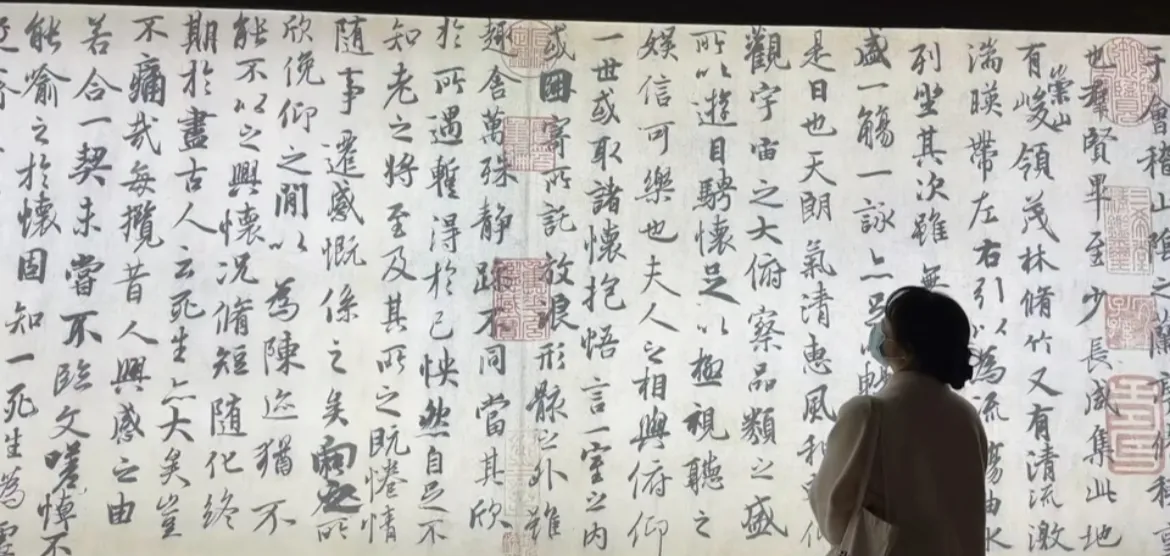 于會稽山陰之蘭亭脩稧
也羣賢畢至少長咸集此地
有崇山峻領茂林脩竹又有清流激
湍暎帶左右引以為流觴曲水
列坐其次雖無
盛一觴一詠亦足以暢
是日也天朗氣清惠風和
觀宇宙之大俯察品類之盛
所以遊目騁懷足以極視聽之
娛信可樂也夫人之相與俯仰
一世或取諸懷抱悟言一室之內
或因寄所託放浪形骸之外雖
趣舍萬殊静躁不同當其欣
於所遇蹔得於己怏然自足不
知老之將至及其所之既惓情
随事遷感慨係之矣向之所
欣俛仰之閒以為陳迹猶不
能不以之興懷况脩短随化終
期於盡古人云死生亦大矣豈
不痛哉每攬昔人興感之由
若合一契未嘗不臨文嗟悼不
能喻之於懷固知一死生為虛